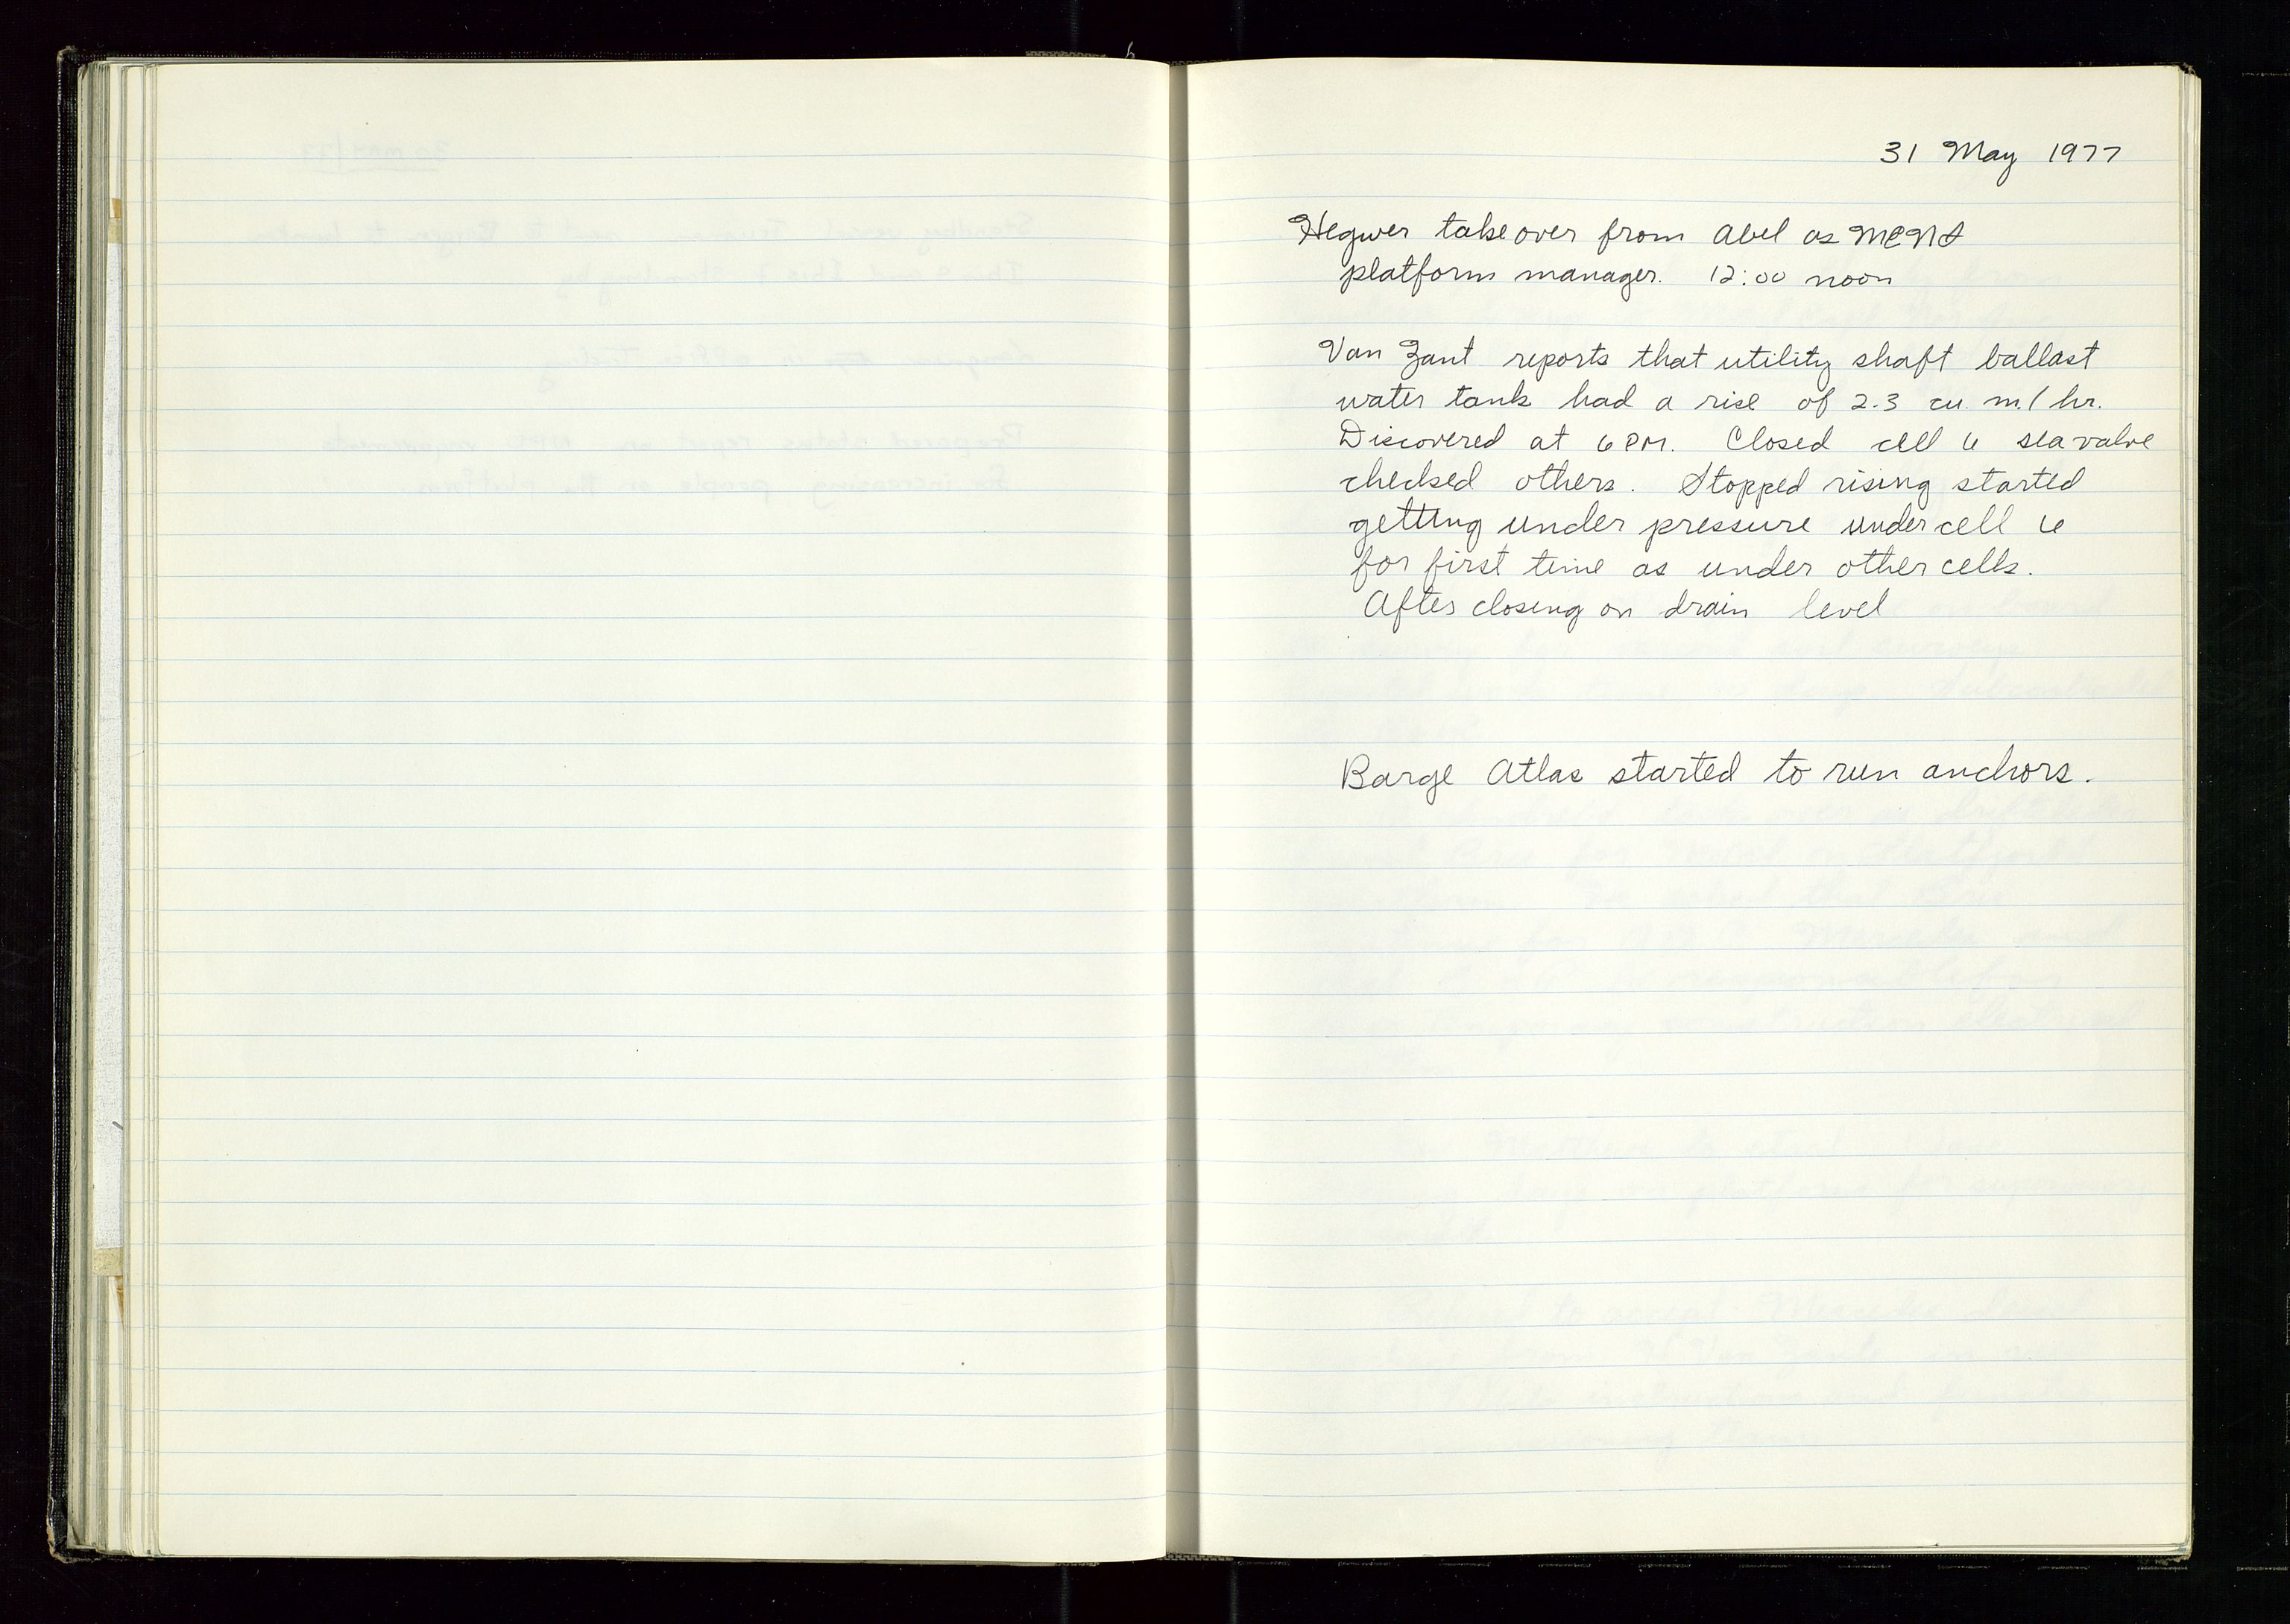 31 May 1977
Hegwer takeover from Abel as MENS
platform manager. 12:00 noon
Van Zant reports that utility shaft ballast
water tank had a rise of 2.3 cu. m./hr.
Discovered at 6 PM. Closed cell 6 seavalve
checked others. Stopped rising started
getting under pressure under cell 6
for first time as under other cells.
After closing on drain level
Barge Atlas started to run anchors.